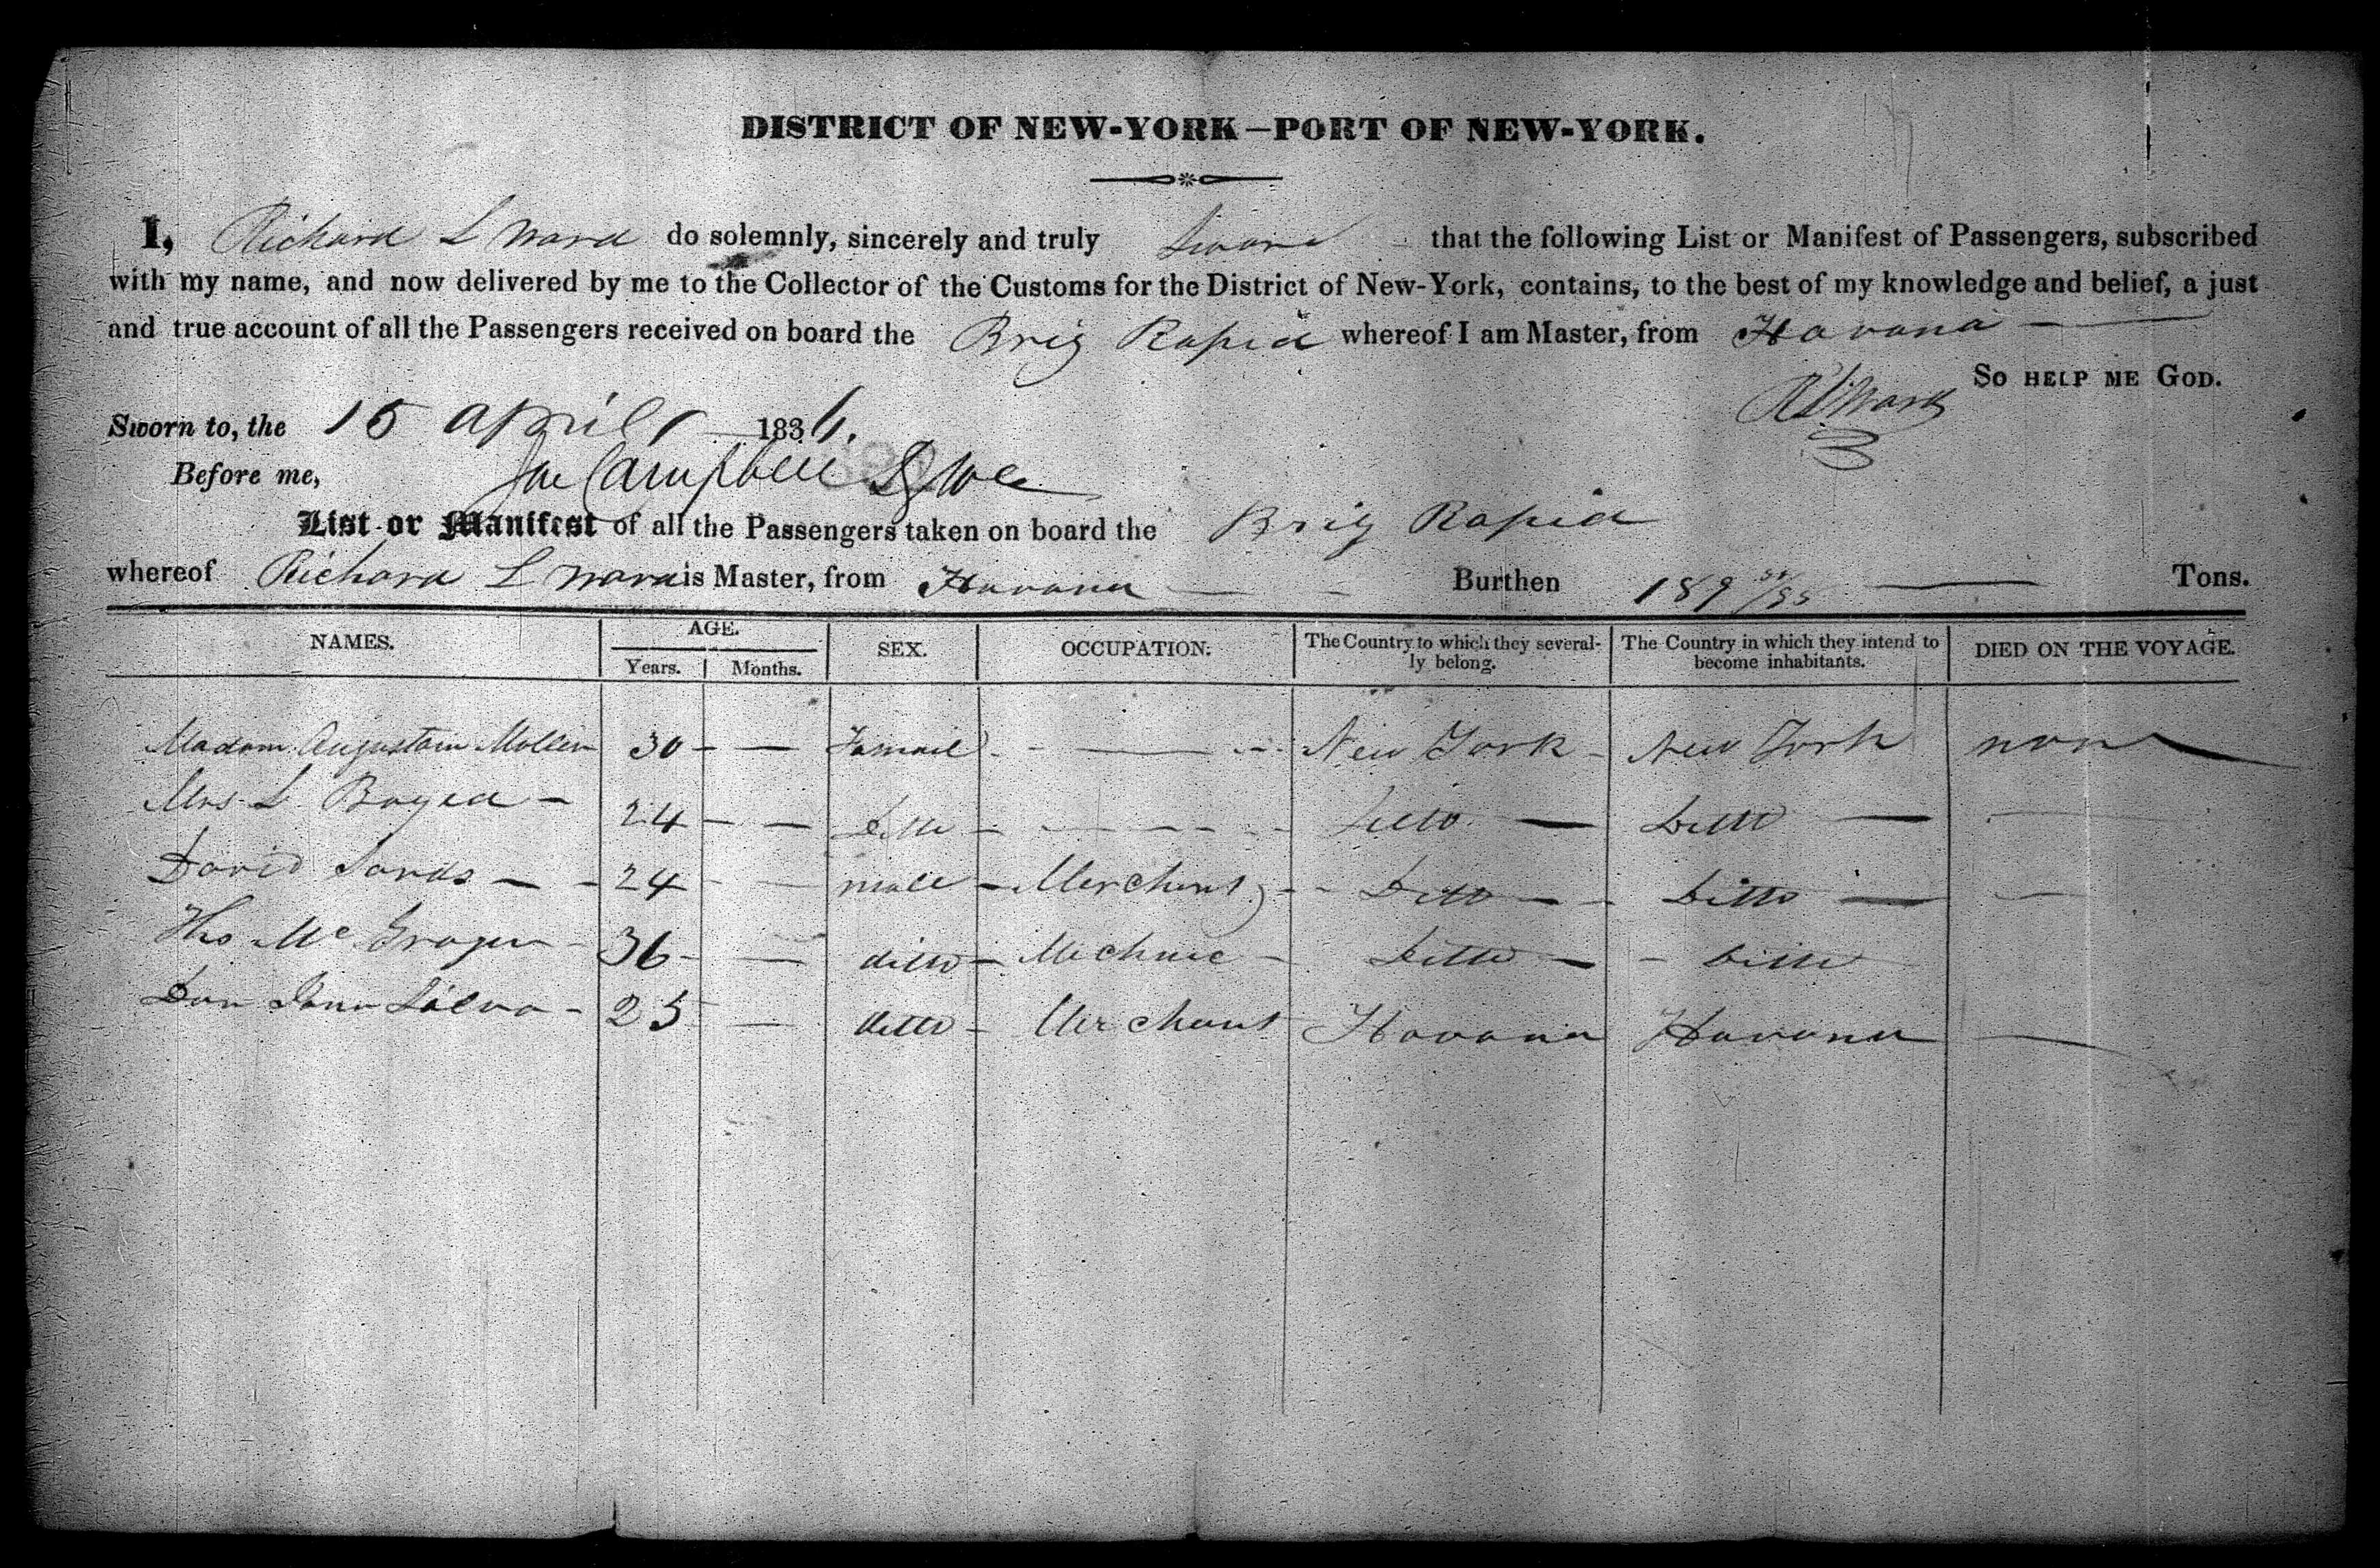 DISTRICT OF NEW-YORK—PORT OF NEW-YORK.
I, Richard L Ward do solemnly, sincerely and truly Swear that the following List or Manifest of Passengers, subscribed
with my name, and now delivered by me to the Collector of the Customs for the District of New-York, contains, to the best of my knowledge and belief, a just
and true account of all the Passengers received on board the Brig Rapid whereof I am Master, from Havana
So HELP ME GOD.
R L Ward
Sworn to, the 15 April 1836.
Before me, Campbell
List or Manifest of all the Passengers taken on board the Brig Rapid
whereof Richard L Ward is Master, from Havana Burthen 189 Tons.
NAMES. AGE. SEX. OCCUPATION. The Country to which they several- The Country in which they intend to DIED ON THE VOYAGE.
Years. Months. ly belong. become inhabitants.
Madam Augustam 30 — Female New York New York none
Mrs L 24 — Ditto Ditto Ditto
David Sands 24 male Merchant Ditto Ditto
Ths Mc 36 — ditto Mechanic Ditto Ditto
Don Silva 25 — ditto Merchant Havana Havana